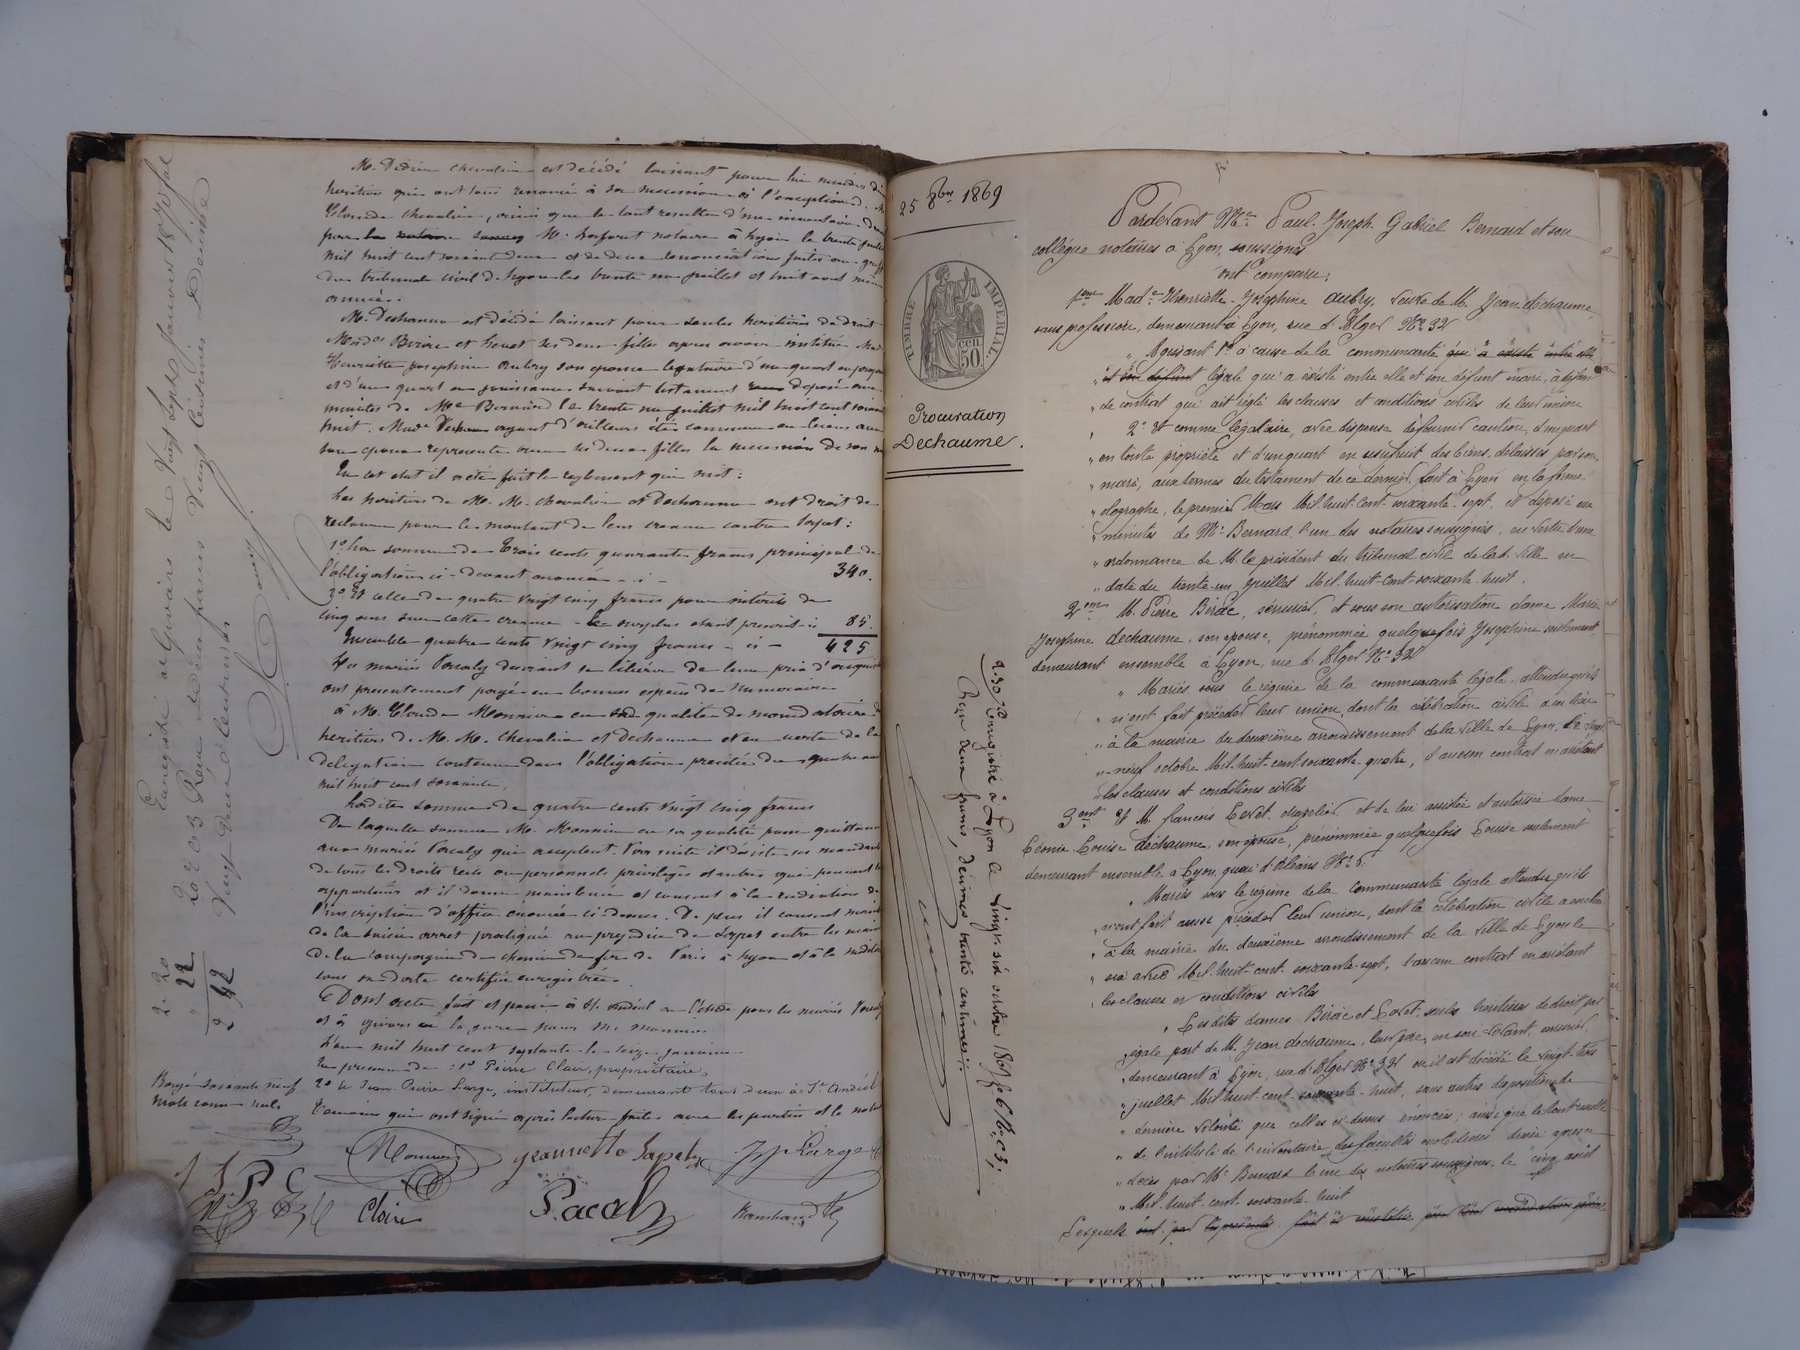 M. Didier Chevalier est décédé laissant pour lui succéder
heritiers qui ont tous renoncé à sa succession à l'exception d. M
Claude Chevalier, ainsi que le tout resulte d'un inventaire
par M. notaire à Lyon le trente juillet
mil huit cent soixante deux et de deux renonciations faites au greffe
du tribunal civil de Lyon les trente un juillet et huit aout même
année.
M. Dechaume est décédé laissant pour seules heritières de droit
Mesd.es Birac et Levet ses deux filles apres avoir institué Mad.
Henriette Josephine Aubry son epouse legataire d'un quart en propriété
et d'un quart en jouissance suivant testament deposé aux
minutes de Me Bernard le trente un juillet mil huit cent soixante
huit. Made Dechaume ayant d'ailleurs été commune en biens avec
son epoux represente avec ses deux filles la succession de son
En cet etat il a été fait le reglement qui suit :
Les heritiers de M. M. Chevalier et Dechaume ont droit de
reclamer pour le montant de leur creance contre :
1° La somme de trois cents quarante francs principal de
l'obligation ci-devant enoncée - ci - 340.
2° Et celle de quatre vingt cinq francs pour interets de
cinq ans sur cette creance - le surplus étant prescrit - ci 85.
Ensemble quatre cents vingt cinq francs - ci - 425
Les mariés Pacaly desirant se libérer de leur prix d'acquisition
ont presentement payé en bonnes espèces de numeraire
à M. Claude Monnier en sa qualité de mandataire d
heritiers de M. M. Chevalier et Dechaume et en vertu de la
delegation contenue dans l'obligation précitée du quatre
mil huit cent soixante,
Ladite somme de quatre cents vingt cinq francs
De laquelle somme M. Monnier en sa qualité passe quittance
aux mariés Pacaly qui acceptent. Par suite il désiste ses mandants
de tous les droits reels ou personnels privileges et autres que peuvent
et il donne mainlevée et consent à la radiation de
l'inscription d'office enoncée ci-dessus. De plus il consent mainlevée
de la saisie arret pratiquée au prejudice de entre les mains
de la compagnie du chemin de fer de Paris à Lyon et à la méditerranée
sous sa date certifiée enregistrée.
Dont acte fait et passé à St. Andéol en l'étude pour les mariés Pacaly
et à Givors en la gare pour M. Monnier
L'an mil huit cent soixante dix le seize janvier
En presence de : 1° Pierre Clair, propriétaire,
2° et Jean Pierre Large, instituteur, demeurant tous deux à St Andéol
Temoins qui ont signé après lecture faite avec les parties et le notaire
Rayé soixante neuf
mots comme nuls
Monnier Jeannette Papaly JP Large
Claire Pacaly
Enregistré à Givors le vingt sept janvier 1870 fol
20 r c 3 Reçu deux francs vingt centimes Decime
vingt deux centimes
2. 20
" 22
2 42
25 8bre 1869
TIMBRE IMPÉRIAL
50 cen
Procuration
Dechaume.
2.30 Enregistré à Lyon le vingt six octobre 1869 fo 61 Ro, C 3,
Reçu deux francs, décimes trente centimes
Pardevant Me. Paul-Joseph-Gabriel Bernard et son
collègue notaires à Lyon, soussignés
ont comparu :
1ent Made. Henriette-Josephine Aubry, veuve de M. Jean Dechaume,
sans profession, demeurant à Lyon, rue d'Alger No. 32
" Agissant 1° à cause de la communauté qui a existé entre elle
" et son défunt légale qui a existé entre elle et son défunt mari, à défaut
" de contrat qui ait réglé les clauses et conditions civiles de leur union
" 2° Et comme légataire, avec dispense de fournir caution, d'un quart
" en toute propriété et d'un quart en usufruit des biens délaissés par son
" mari, aux termes du testament de ce dernier, fait à Lyon en la forme
" olographe, le premier Mars Mil-huit-cent-soixante-sept, et déposé aux
" minutes de Me Bernard l'un des notaires soussignés, en vertu d'une
" ordonnance de M. le président du tribunal civil de lad. ville en
" date du trente-un juillet Mil-huit-cent-soixante-huit.
2ent M. Pierre Birac, serrurier, et sous son autorisation dame Marie
Josephine Dechaume, son épouse, prénommée quelquefois Josephine seulement,
demeurant ensemble à Lyon, rue d'Alger No. 32
" Mariés sous le régime de la communauté légale, attendu qu'ils
" n'ont fait précéder leur union, dont la célébration civile a eu lieu
" à la mairie du deuxième arrondissement de la ville de Lyon, le vingt
" -neuf octobre Mil-huit-cent-soixante-quatre, d'aucun contrat en arrêtant
" les clauses et conditions civiles
3ent Et M. François Levet, chapelier, et de lui assistée et autorisée dame
Léonie-Louise Dechaume, son épouse, prénommée quelquefois Louise seulement
demeurant ensemble à Lyon, quai d'Orléans No. 6
" Mariés sous le régime de la communauté légale attendu qu'ils
" n'ont fait aussi précéder leur union, dont la célébration civile a eu lieu
" à la mairie du deuxième arrondissement de la ville de Lyon le
" six avril Mil-huit-cent-soixante-sept, d'aucun contrat en arrêtant
" les clauses et conditions civiles
" Lesdites dames Birac et Levet, seules héritières de droit par
" égale part de M. Jean Dechaume, leur père, en son vivant ouvrier,
" demeurant à Lyon, rue d'Alger No. 32 où il est décédé le vingt-trois
" juillet Mil-huit-cent-soixante-huit, sans autre disposition de
" dernière volonté que celles ci-dessus énoncées ; ainsi que le tout résulte
" de l'intitulé de l'inventaire des facultés mobilières dressé après ce
" décès par Me Bernard l'un des notaires soussignés, le cinq août
" Mil-huit-cent-soixante-huit
Lesquels ont par les présentes fait et constitué pour leur mandataire